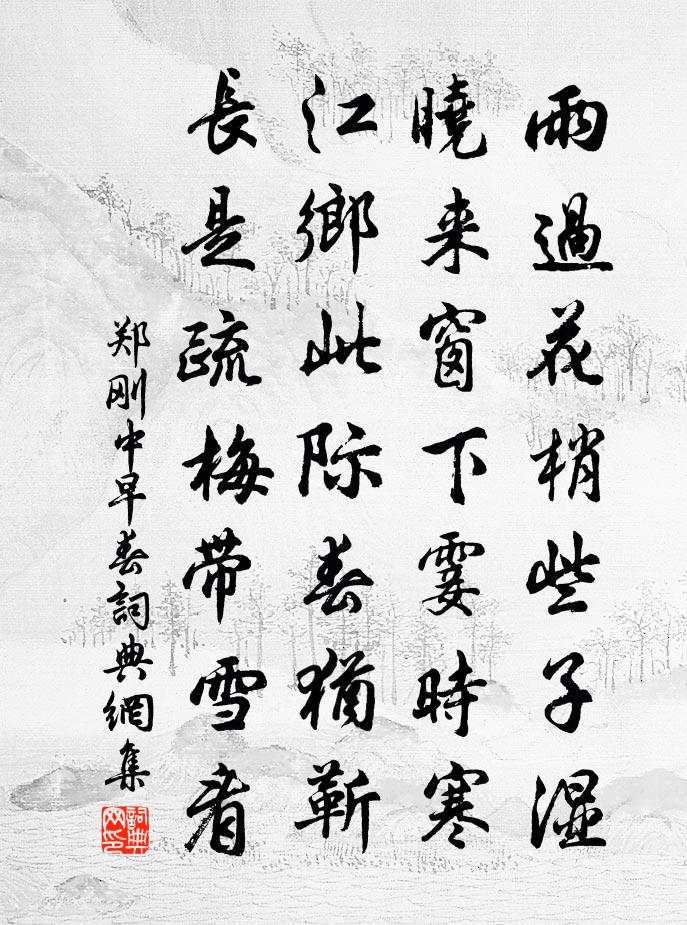 雨過花梢些子濕
曉来窗下霎時寒
江鄉此际春猶靳
長是疏梅带雪看
郑刚中早春詞典網集
詞典
网印